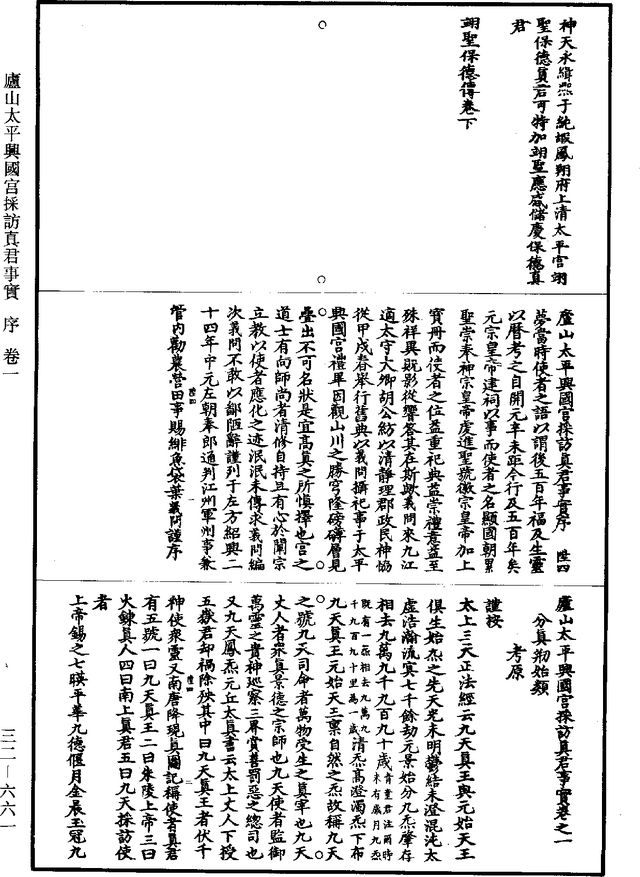 神天永緝熙于純嘏鳳翔府上清太平宮翊
聖保德真君可特加翊聖應感儲慶保德真
君
翊聖保德傳卷下
廬山太平興國宮採訪真君事實序 陛四
夢當時使者之語以謂後五百年福及生靈
以曆考之自開元辛未距今行及五百年矣
元宗皇帝建祠以事而使者之名顯國朝累
聖崇奉神宗皇帝虔進聖號徽宗皇帝加上
寶冊而使者之位益重祀典益崇禮意益至
殊祥異既影從響答其在斯歟義問來九江
適太守大卿胡公紡以清靜理郡政民神協
從甲戌春舉行舊典以義問攝祀事于太平
興國宮禮畢因觀山川之勝穹隆磅礴層見
疊出不可名狀是宜高真之所慎擇也宮之
道士有向師尚者清修自持且有心於闡宗
立教以使者應化之迹泯泯未傳求義問編
次義問不敢以鄙陋辭謹列于左方紹興二
十四年中元左朝奉郎通判江州軍州事兼
管內勸農營田事賜緋魚袋葉義問謹序
廬山太平興國宮採訪真君事實卷之一
分真剏始類
考原
謹按
太上三天正法經云九天真王與元始天王
俱生始炁之先天光未明鬱結未澄混沌太
虛浩瀚流冥七千餘劫元景始分九炁肇存
相去九萬九千九百九十歲青童君注爾時未有歲月九炁
既有一炁相去九萬九千九百九十里為一歲清炁高澄濁炁下布
九天真王元始天王稟自然之炁故稱九天
之號九天司命者萬物受生之真宰也九天
丈人者衆真景德之宗師也九天使者監御
萬靈之貴神巡察三界賞善罰惡之總司也
又九天鳳炁元丘太真書云太上丈人下授
五嶽君却禍除殃其中曰九天真王者伏千
神使衆靈又南唐降現真圖記稱使者真君
有五號一曰九天真王二曰朱陵上帝三曰
火鍊真人四曰南上真君五曰九天採訪使
者
上帝錫之七暎平華九德偃月金晨玉冠九
廬山太平興國宮採訪真君事實 序 卷一
三二—六六一